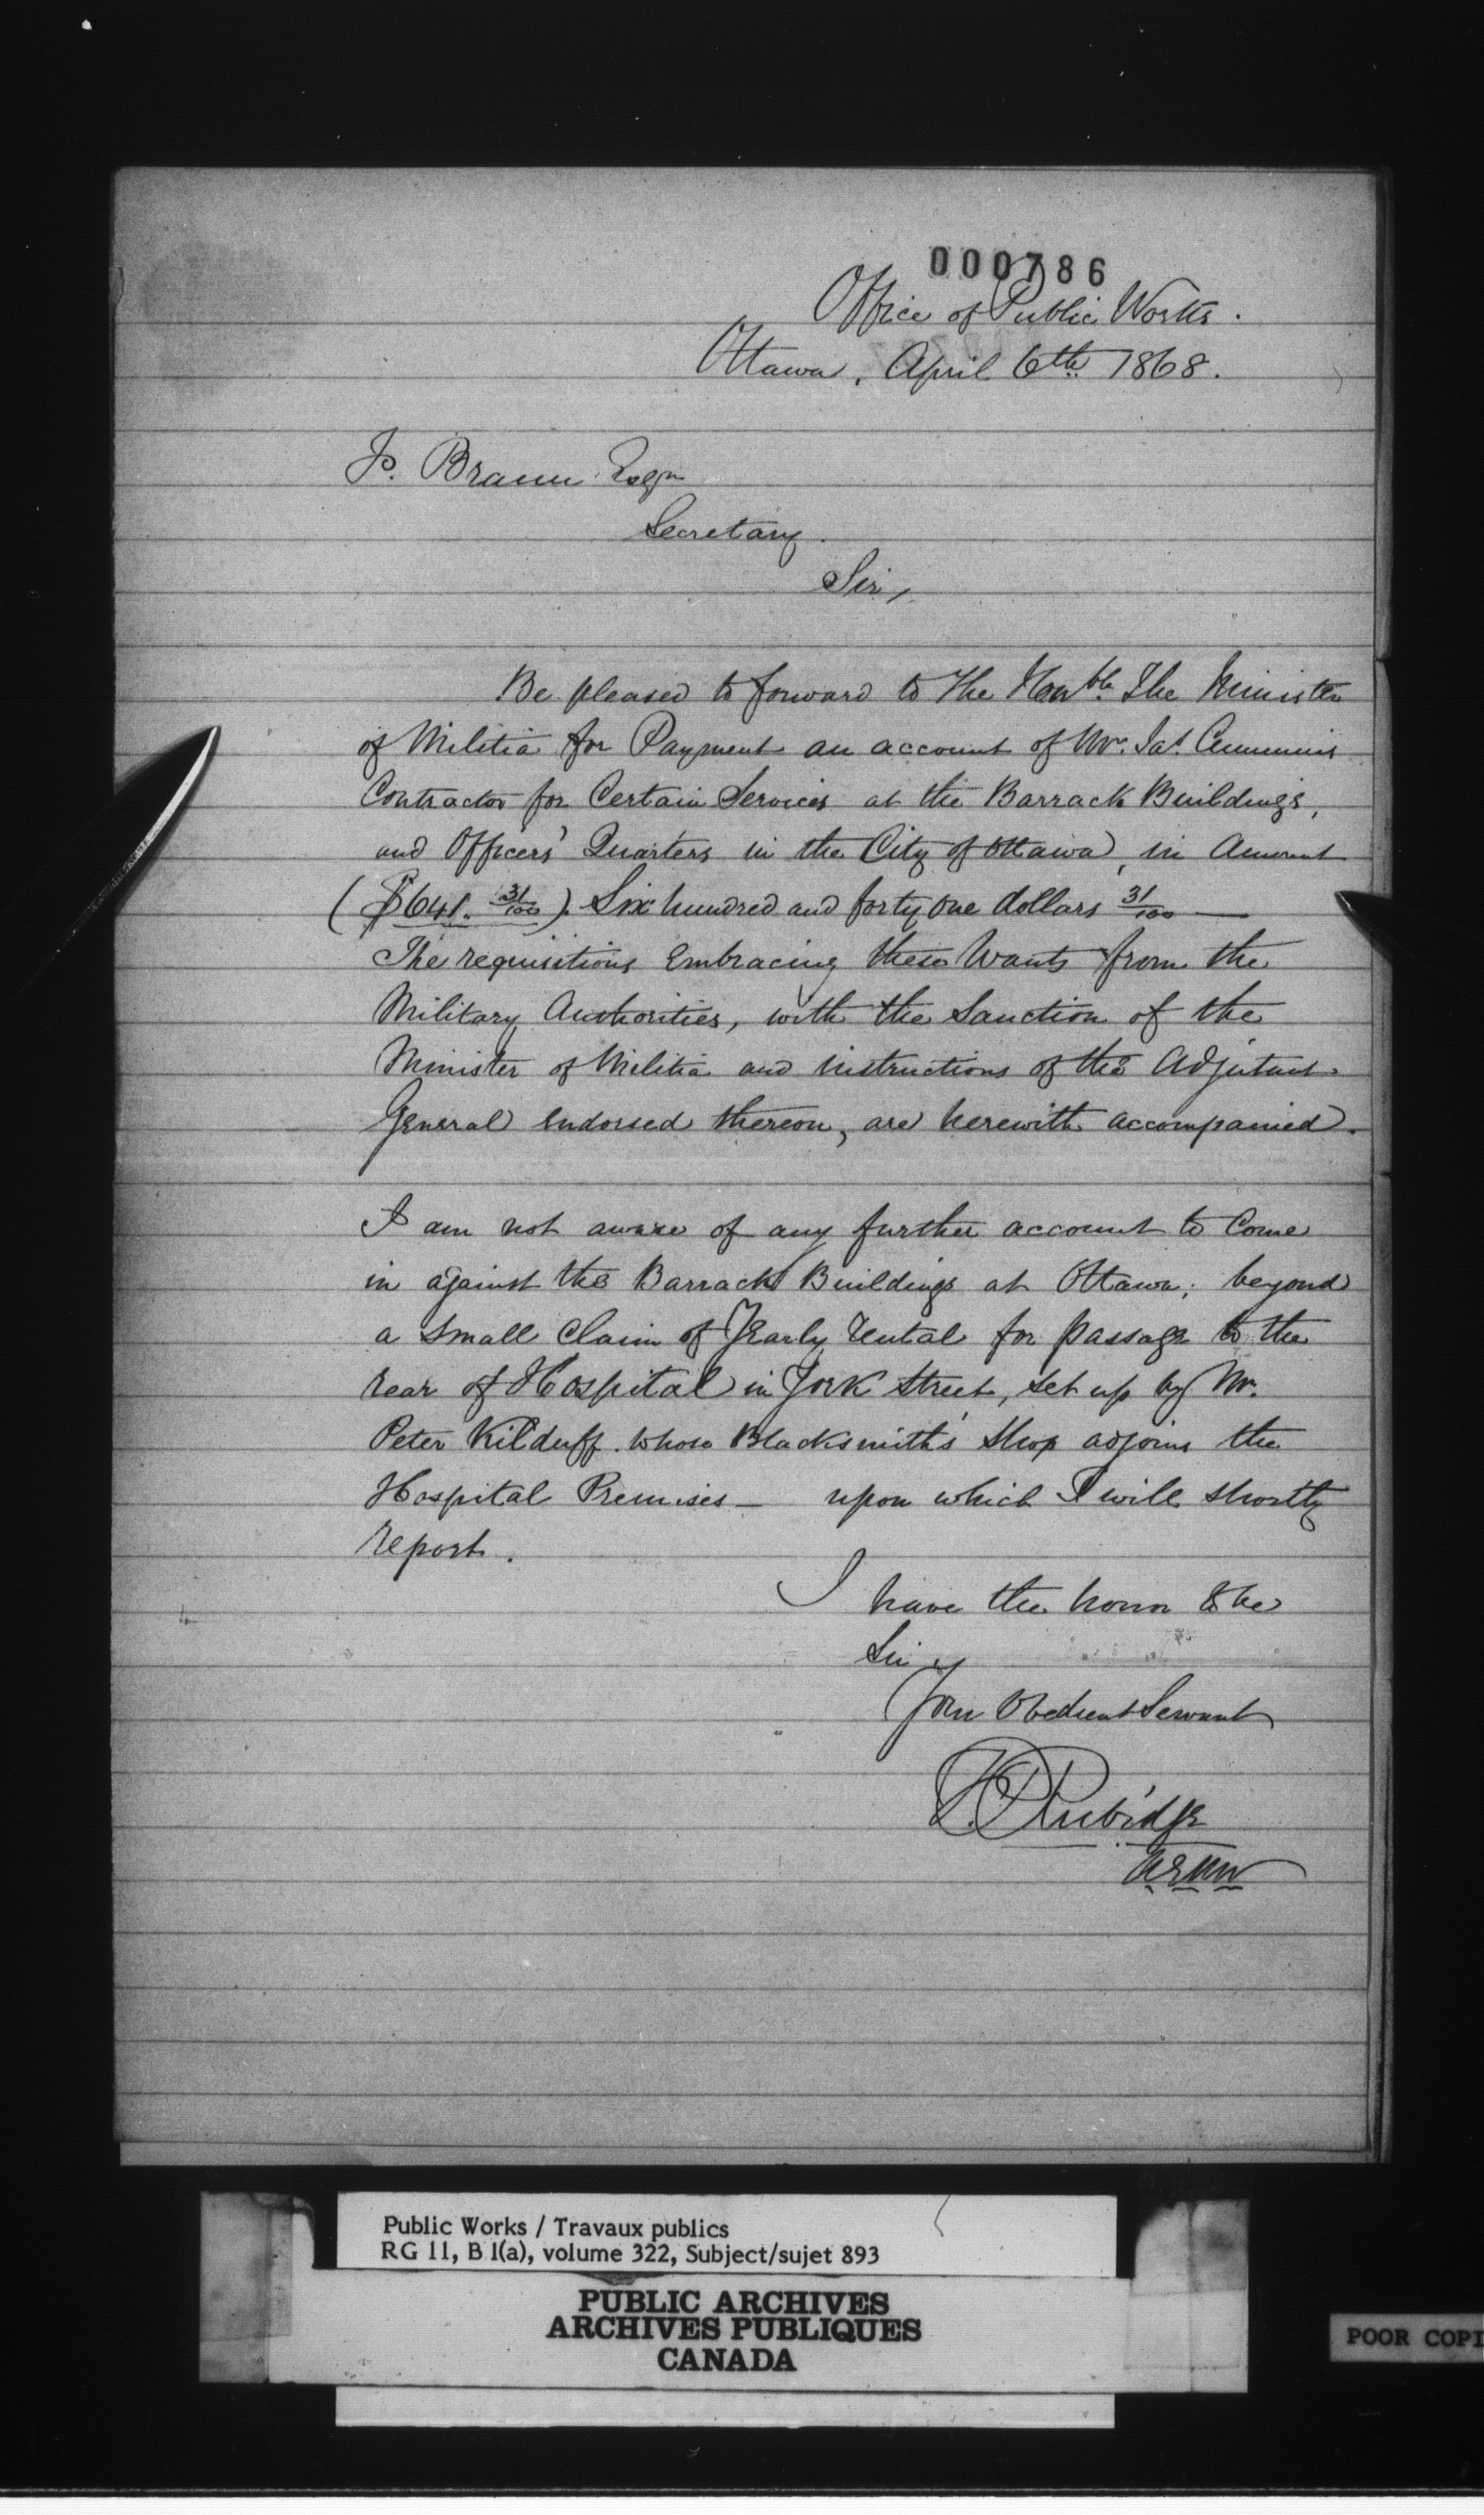 000786
Office of Public Works.
Ottawa, April 6th 1868.
F. Braun Esqr
Secretary.
Sir,
Be pleased to forward to the Honble. The Minister
of Militia for Payment an account of Mr. Jas. Cummins
Contractor for Certain Services at the Barrack Buildings,
and Officers' Quarters in the City of Ottawa, in Amount
($641. 31/100). Six hundred and forty one dollars 31/100 —
The requisitions Embracing these Wants from the
Military Authorities, with the Sanction of the
Minister of Militia and instructions of the Adjutant
General endorsed thereon, are herewith accompanied.
I am not aware of any further account to Come
in against the Barrack Buildings at Ottawa; beyond
a Small Claim of Yearly Rental for passage to the
rear of Hospital in York Street, set up by Mr.
Peter Kilduff. whose Blacksmith's Shop adjoins the
Hospital Premises — upon which I will shortly
report.
I have the honor to be
Sir
Your Obedient Servant
F. P. Rubidge
Public Works / Travaux publics
RG 11, B 1(a), volume 322, Subject/sujet 893
PUBLIC ARCHIVES
ARCHIVES PUBLIQUES
CANADA
POOR COPI